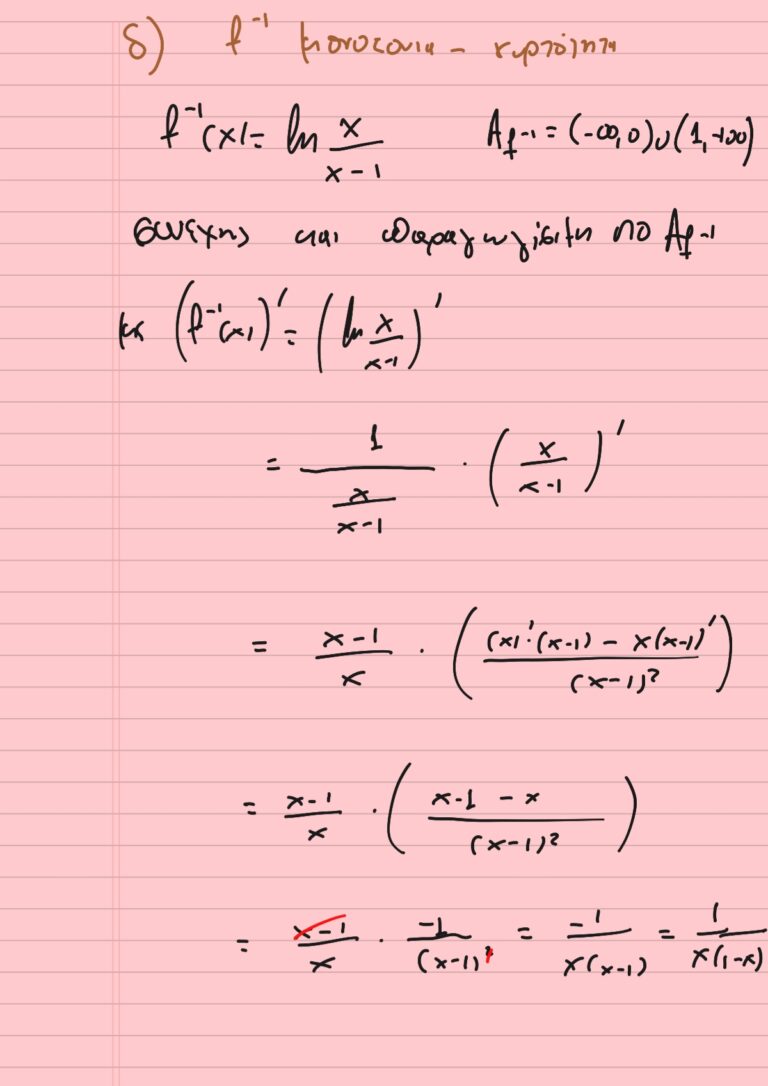 δ) f⁻¹ μονοτονια - κυρτότητα
f⁻¹(x) = ln x/(x-1)   A_f⁻¹ = (-∞,0)∪(1,+∞)
συνεχης και παραγωγίσιμη στο A_f⁻¹
με (f⁻¹(x))' = (ln x/(x-1))'
= 1/(x/(x-1)) · (x/(x-1))'
= (x-1)/x · (((x)'·(x-1) - x(x-1)')/(x-1)²)
= (x-1)/x · ((x-1-x)/(x-1)²)
= (x-1)/x · -1/(x-1)² = -1/(x(x-1)) = 1/(x(1-x))